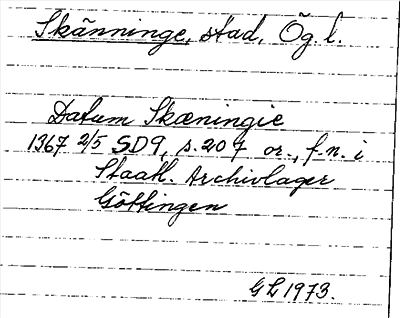 Skänninge, stad, Ög l.
Datum Skæningie
1367 2/5 SD9, s. 207 or., f.n. i
Staatl. Archivlager
Göttingen
GL 1973.